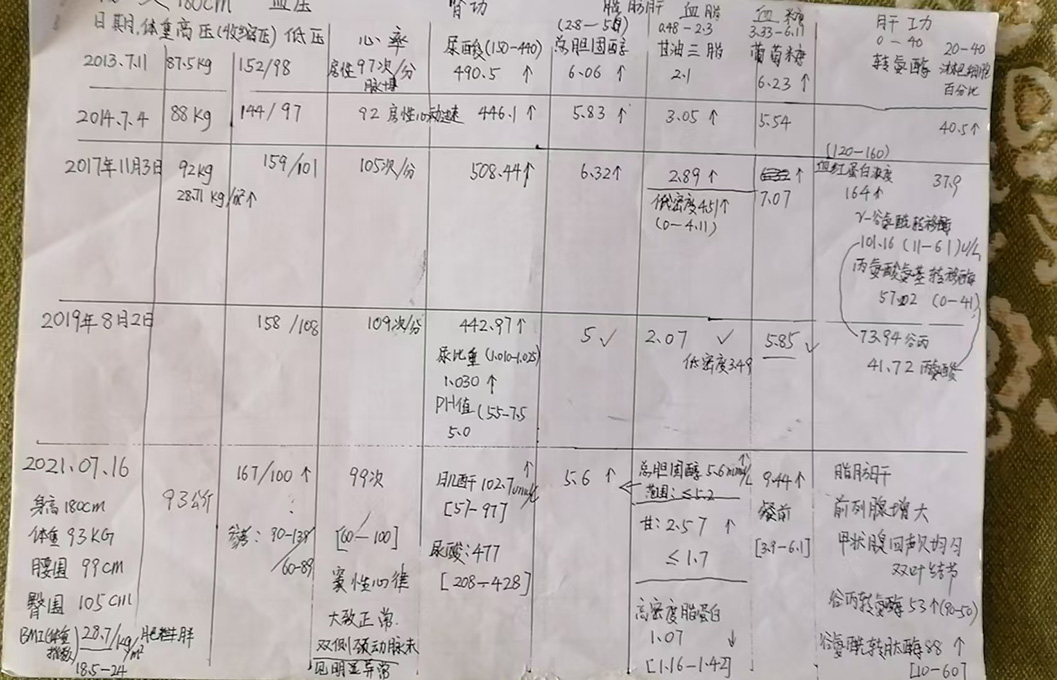 180cm 血压 肾功 脂肪肝 血脂 血糖 肝功
日期,体重 高压(收缩压) 低压 心率 尿酸(150-440) 总胆固醇 0.48-2.3 甘油三脂 3.33-6.11 葡萄糖 0-40 转氨酶 20-40 淋巴细胞百分比
2013.7.11 87.5kg 152/98 房性97次/分 490.5↑ 6.06↑ 2.1 6.23↑
2014.7.4 88kg 144/97 92 房性心动过速 446.1↑ 5.83↑ 3.05↑ 5.54 40.5↑
2017年11月3日 92kg 159/101 105次/分 508.44↑ 6.32↑ 2.89↑ ↑ (120-160)
血红蛋白浓度 37.9
28.71kg/m²↑ 低密度4.51↑ 7.07 164↑
(0-4.11) γ-谷氨酰转移酶
101.16 (11-61)U/L
丙氨酸氨基转移酶
57.02 (0-41)
2019年8月2日 158/108 109次/分 442.97↑ 5✓ 2.07✓ 5.85✓ 73.94谷丙
尿比重(1.010-1.025) 低密度3.49 41.72丙氨酸
1.030↑
PH值(5.5-7.5
5.0
2021.07.16 93公斤 167/100↑ 99次 肌酐102.7umol/L↑ 5.6↑ 总胆固醇5.6mmol/L↑ 9.44↑ 脂肪肝
身高180cm [57-97] 范围:≤5.2 餐前 前列腺增大
体重93KG 参考:90-139/60-89 [60-100] 尿酸:477 甘:2.57↑ [3.9-6.1] 甲状腺回声欠均匀
腰围99cm 窦性心律 [208-428] ≤1.7 双叶结节
臀围105cm 大致正常. 高密度脂蛋白 谷丙转氨酶53↑
BMI(体重指数)28.7/kg/m² 肥胖 双侧颈动脉未 1.07↓ 谷氨酰转肽酶88↑
18.5-24 见明显异常 [1.16-1.42] [10-60]